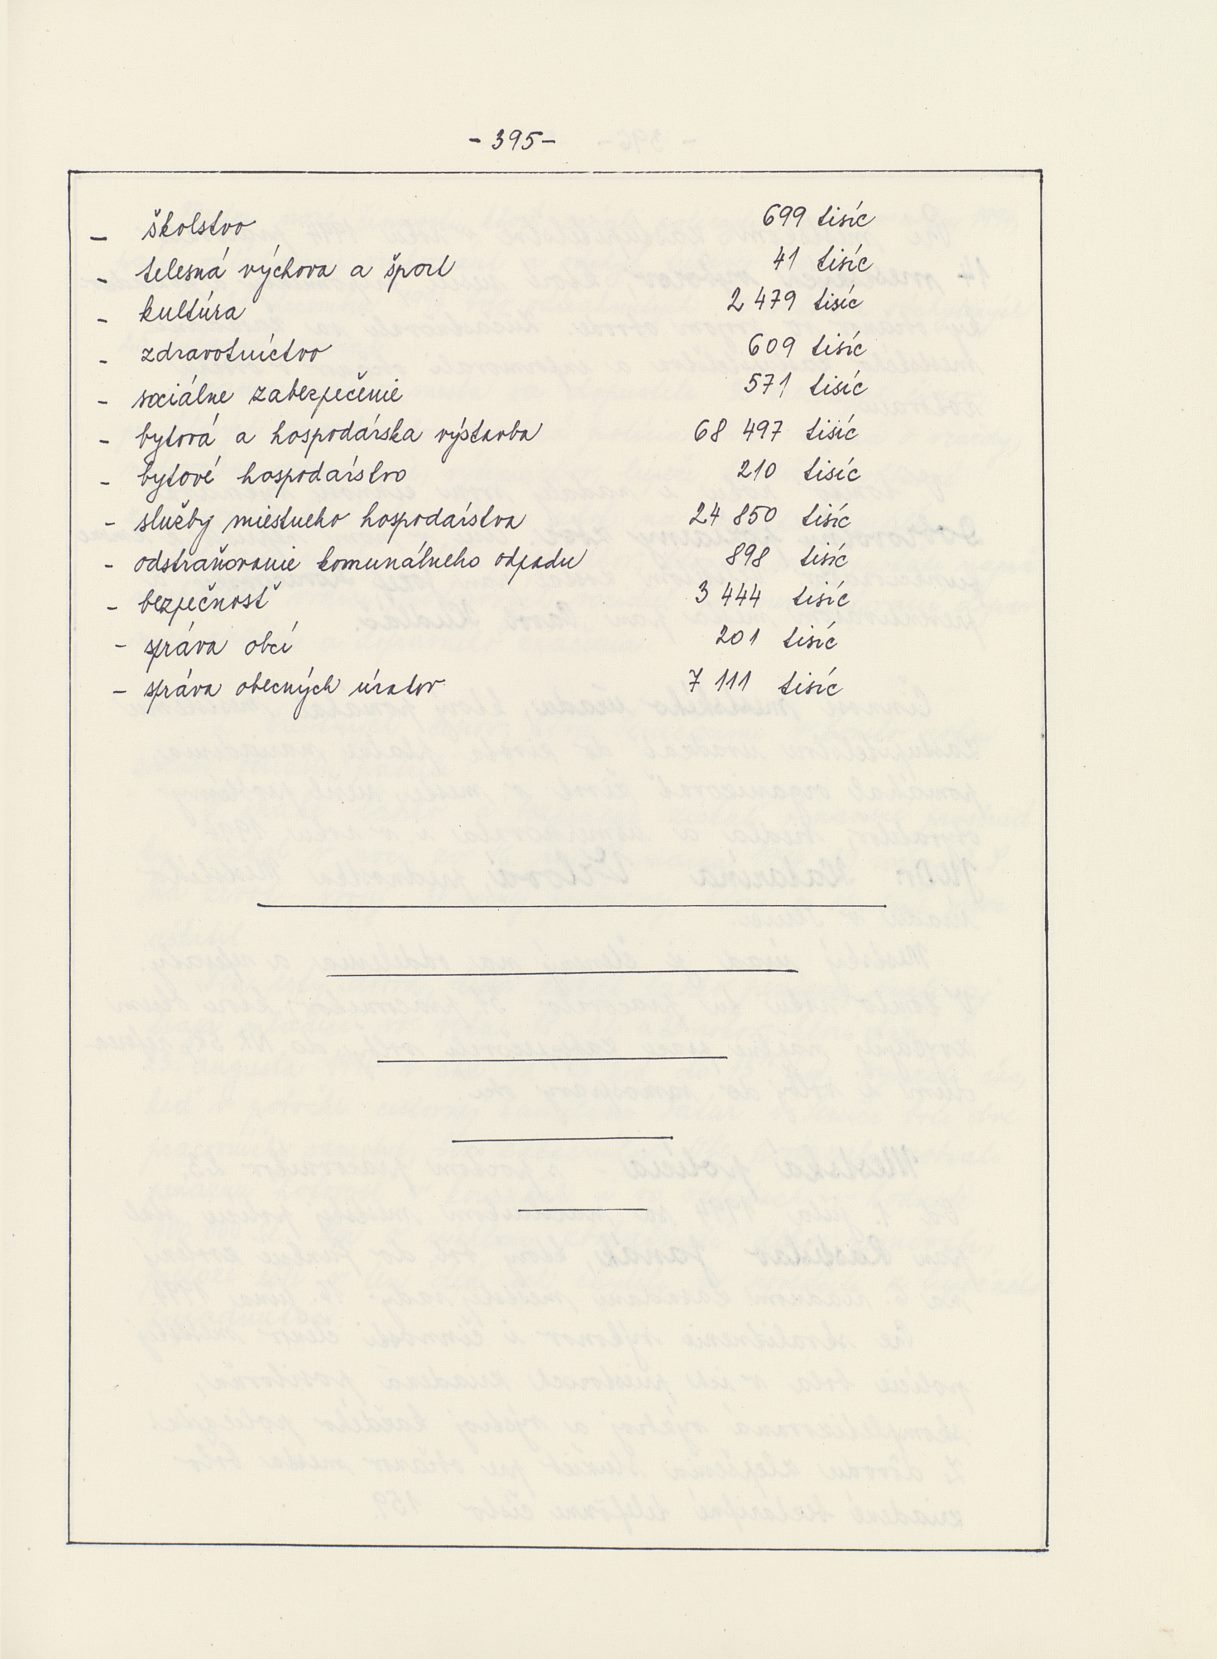 - 395 -
- školstvo 699 tisíc
- telesná výchova a šport 41 tisíc
- kultúra 2 479 tisíc
- zdravotníctvo 609 tisíc
- sociálne zabezpečenie 571 tisíc
- bytová a hospodárska výstavba 68 497 tisíc
- bytové hospodárstvo 210 tisíc
- služby miestneho hospodárstva 24 850 tisíc
- odstraňovanie komunálneho odpadu 898 tisíc
- bezpečnosť 3 444 tisíc
- správa obcí 201 tisíc
- správa obecných úradov 7 111 tisíc